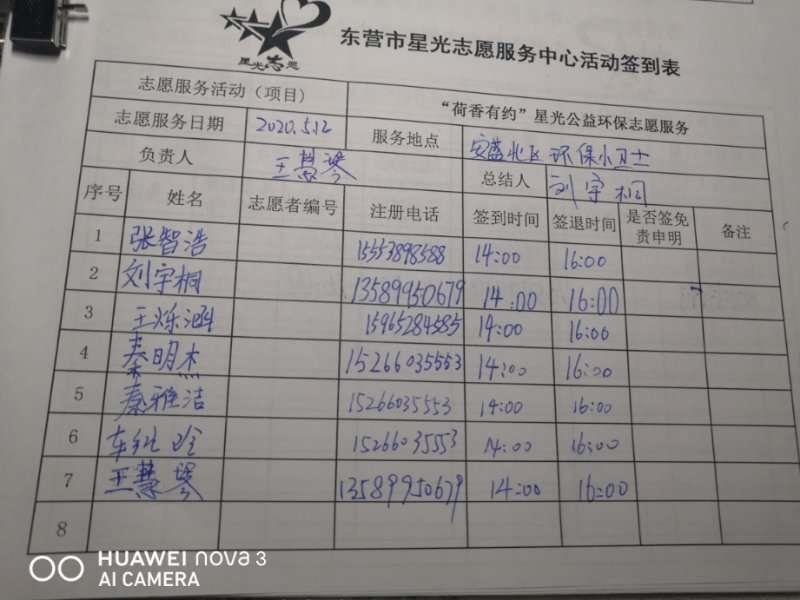 星光志愿
东营市星光志愿服务中心活动签到表
志愿服务活动（项目） “荷香有约”星光公益环保志愿服务
志愿服务日期 2020.5.12 服务地点 安盛北区环保小卫士
负责人 王慧琴 总结人 刘宇桐
序号 姓名 志愿者编号 注册电话 签到时间 签退时间 是否签免责申明 备注
1 张智浩 15553898588 14:00 16:00
2 刘宇桐 13589950679 14:00 16:00
3 王烁涵 15965284585 14:00 16:00
4 秦明杰 15266035553 14:00 16:00
5 秦雅洁 15266035553 14:00 16:00
6 15266035553 14:00 16:00
7 王慧琴 13589950679 14:00 16:00
8
HUAWEI nova 3
AI CAMERA